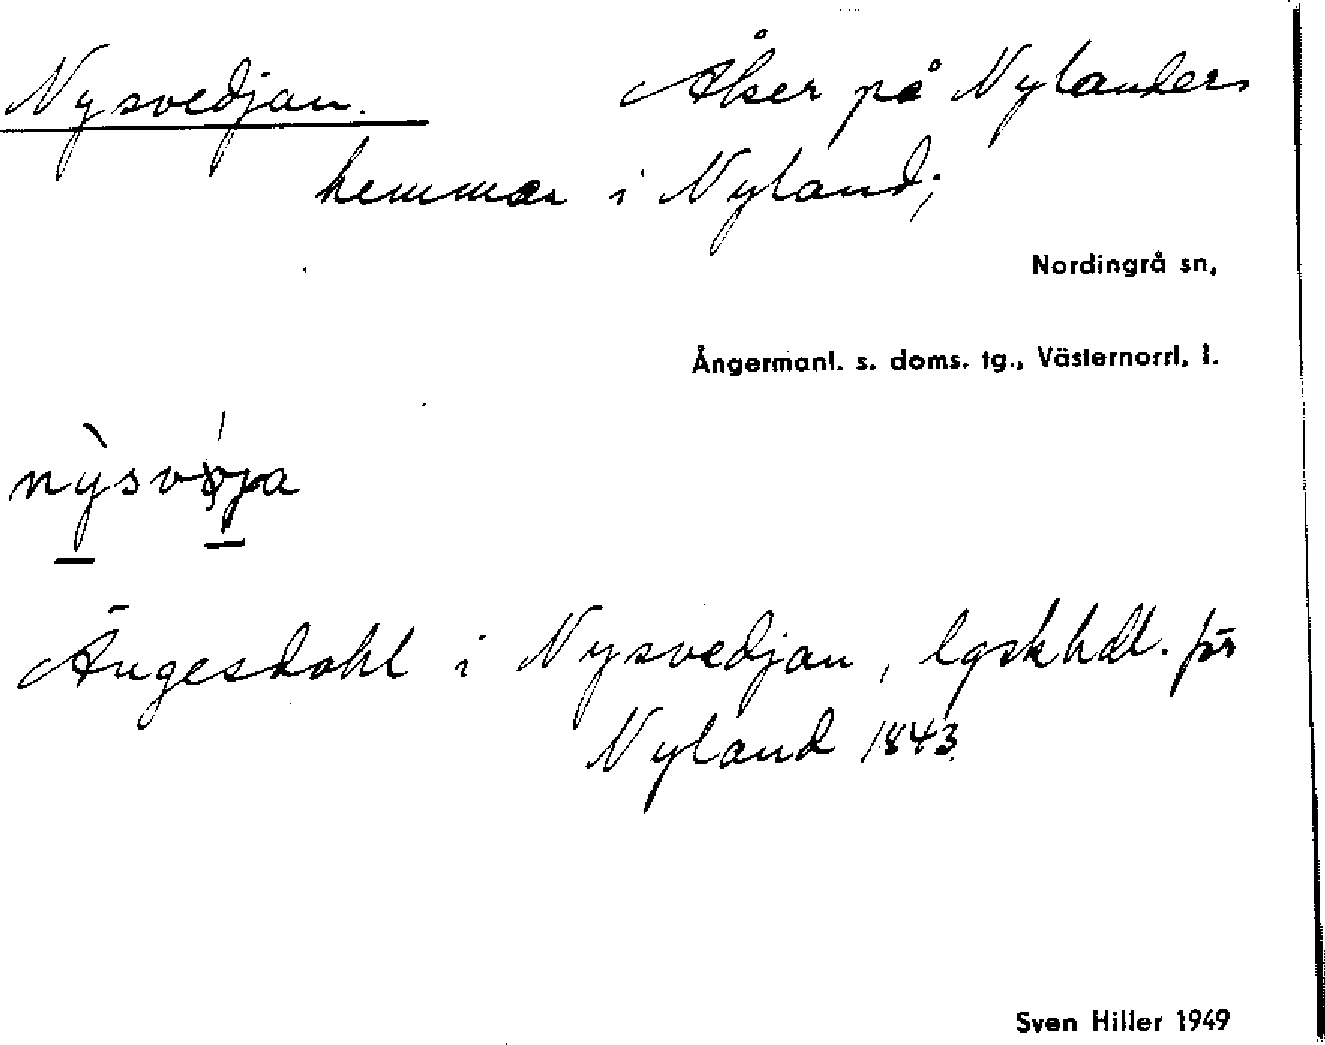 Nysvedjan. Åker på Nylanders
hemman i Nyland;
Nordingrå sn,
Ångermanl. s. doms. tg., Västernorrl. l.
Ängesdahl i Nysvedjan, lgskhdl. för
Nyland 1843.
Sven Hiller 1949